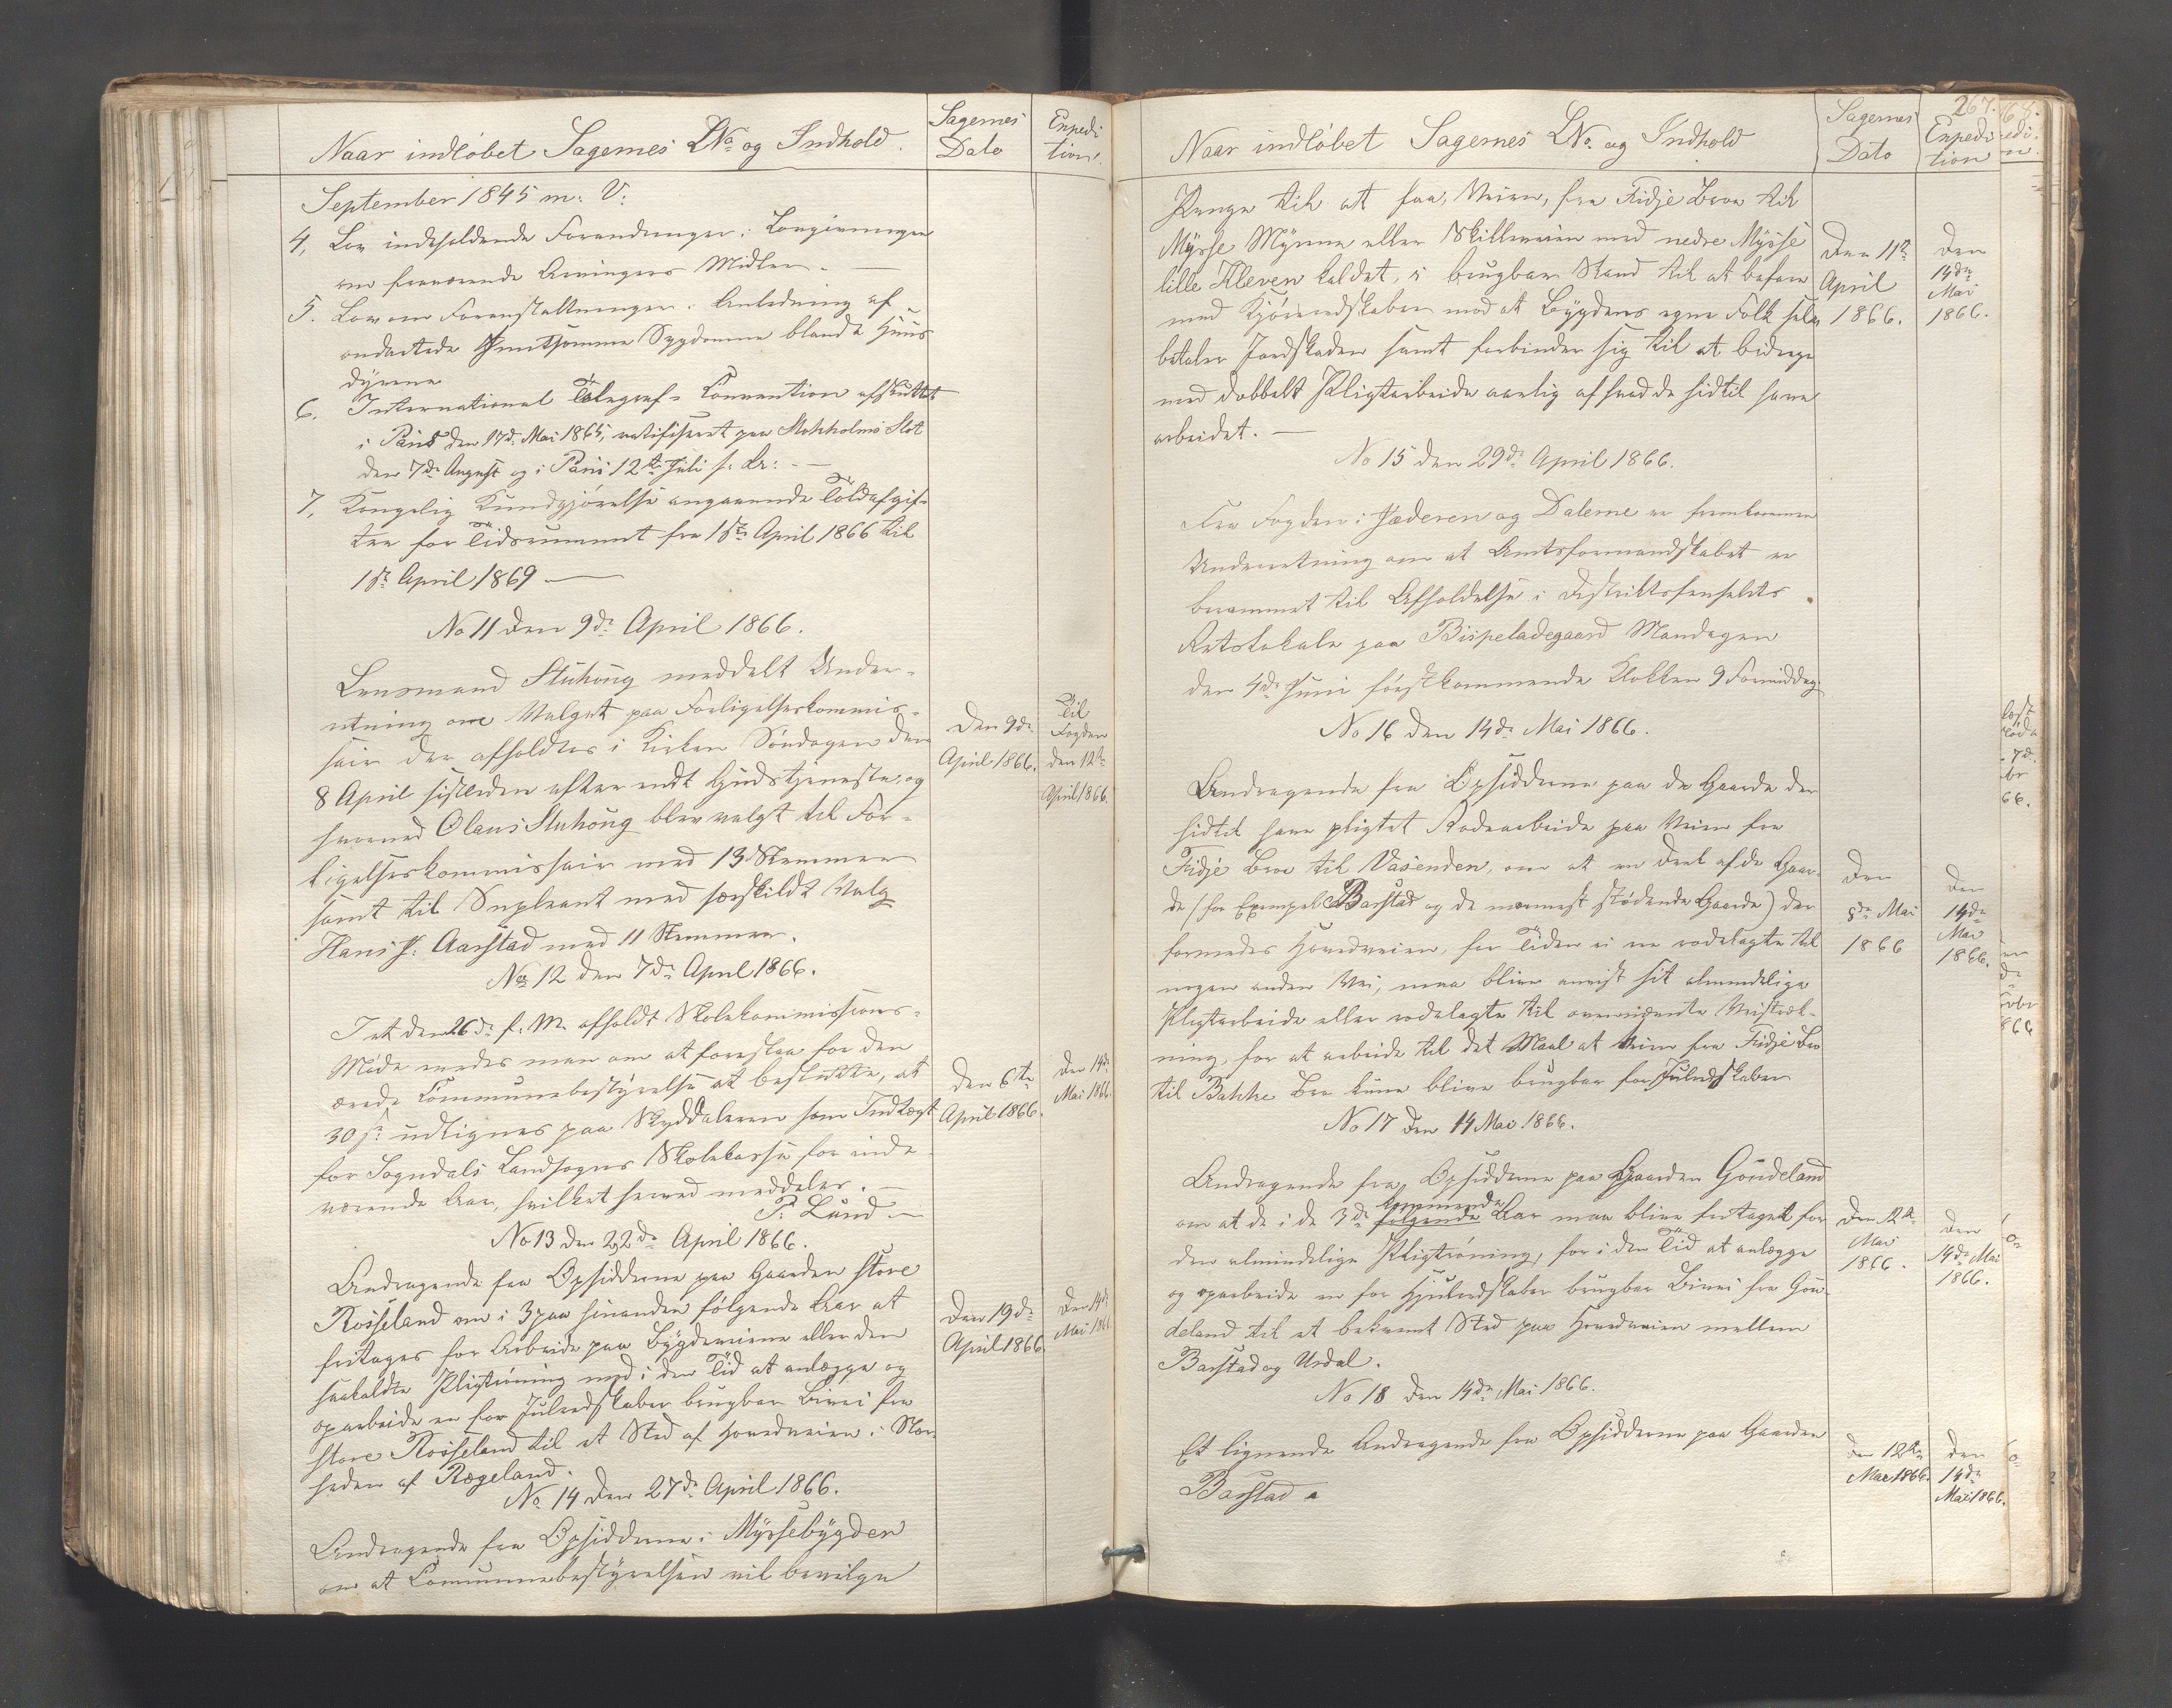 Naar indløbet Sagernes LNo og Indhold.
Sagernes Dato
Expedition.
September 1845 m. V:
4, Lov indeholdende Forandringer i Lovgivningen
om fraværende Arvingers Midler. —
5. Lov om Foranstaltninger i Anledning af
ondartede smitsomme Sygdomme blandt Huus
dyrene
6. International Telegraf-Convention afsluttet
i Paris den 17de Mai 1865, ratificeret paa Stokholms Slot
den 7de August og i Paris 12te Juli s. Ar: —
7, Kongelig Kundgjørelse angaaende Toldafgif-
ter for Tidsrummet fra 1ste April 1866 til
1ste April 1869 —
No 11 den 9de April 1866.
Lensmand Stuhoug meddelt Under-
retning om Valget paa Forligelseskommis-
sair der afholdtes i Kirken Søndagen den
8 April sistleden efter endt Gudstjeneste, og
hvorved Olaus Stuhoug blev valgt til For-
ligelseskommissair med 13 Stemmer
samt til Supleant med særskildt Valg
Hans P. Aarstad med 11 Stemmer.
Den 9de
April 1866.
Til
Fogden
den 12te
April 1866.
No 12 den 7de April 1866.
I et den 26de f. M. afholdt Skolekommissions-
Møde enedes man om at foreslaa for den
ærede Kommunebestyrelse at beslutte, at
30 sp udlignes paa Skyddaleren som Indtægt
for Sogndals Landsogns Skolekasse for inde-
værende Aar, hvilket herved meddeles. —
P. Lund —
den 6te
April 1866.
Den 14de
Mai 1866.
No 13 den 22de April 1866.
Andragende fra Opsidderne paa Gaarden store
Rosseland om i 3 paa hinanden følgende Aar at
fritages for Arbeide paa Bygdeveiene eller den
saakaldte Pligtrøning mod i den Tid at anlægge og
oparbeide en for Julredskaber brugbar Bivei fra
store Rosseland til et Sted af Hovedveien i Nær-
heden af Rægeland.
Den 19de
April 1866
Den 14de
Mai 1866
No 14 den 27de April 1866.
Andragende fra Opsidderne i Myssebygden
om at Communebestyrelsen vil bevilge
267.
Naar indløbet Sagernes LNo og Indhold
Sagernes Dato
Expedition
Penge til at faa, Veien, fra Fidje Broe til
Mysse Mynne eller Skilleveien ved nedre Mysse
lille Kleven kaldet, i brugbar Stand til at befare
med Kjøreredskaber mod at Bygdens egne Folk selv
betaler Jordskaden samt forbinder sig til at bidrage
med dobbelt Pligtarbeide aarlig af hvad de hidtil have
arbeidet. —
Den 11te
April
1866.
Den
14de
Mai
1866.
No 15 den 29de April 1866.
Fra Fogden i Jæderen og Dalerne er fremkommen
Underretning om at Amtsformandskabet er
berammet til Afholdelse i Distriktsfængslets
Retslokale paa Bispeladegaard Mandagen
den 4de Juni førstkommende Klokken 9 Formiddag
No 16 den 14de Mai 1866.
Andragende fra Opsidderne paa de Gaarde der
hidtil have pligtet Rodearbeide paa Veien fra
Fidje Broe til Vasenden, om at en Deel af de Gaar-
de (for Exempel Barstad og de nærmest stødende Gaarde) der
formedes Hovedveien, for Tiden ei er rodelagte til
nogen anden Vei, maa blive anvist sit almindelige
Pligtarbeide eller rodelagte til ovennævnte Veistræk-
ning, for at arbeide til det Maal at Veien fra Fidje Bro
til Bakke Bro kune blive brugbar for Julredskaber
Den
8de Mai
1866
Den
14de
Mai
1866.
No 17 den 14 Mai 1866.
Andragende fra Opsidderne paa Gaarden Goudeland
kommende
om at de i de 3de følgende Aar maa blive fritaget for
den almindelige Pligtrøning, for i den Tid at anlægge
og oparbeide en for Hjulredskaber brugbar Bivei fra Gou-
deland til et bekvemt Sted paa Hovedveien mellem
Barstad og Urdal.
Den 12te
Mai
1866.
den
14de Mai
1866.
No 18 den 14de Mai 1866.
Et lignende Andragende fra Opsidderne paa Gaarden
Barstad.
den 12te
Mai 1866.
den
14de
Mai 1866.